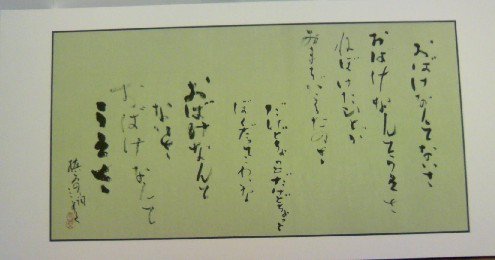 おばけなんてないさ
おばけなんてうそさ
ねぼけたひとが
みまちがえたのさ
だけどちょっとだけどちょっと
ぼくだってこわいな
おばけなんて
ないさ
おばけなんて
うそさ